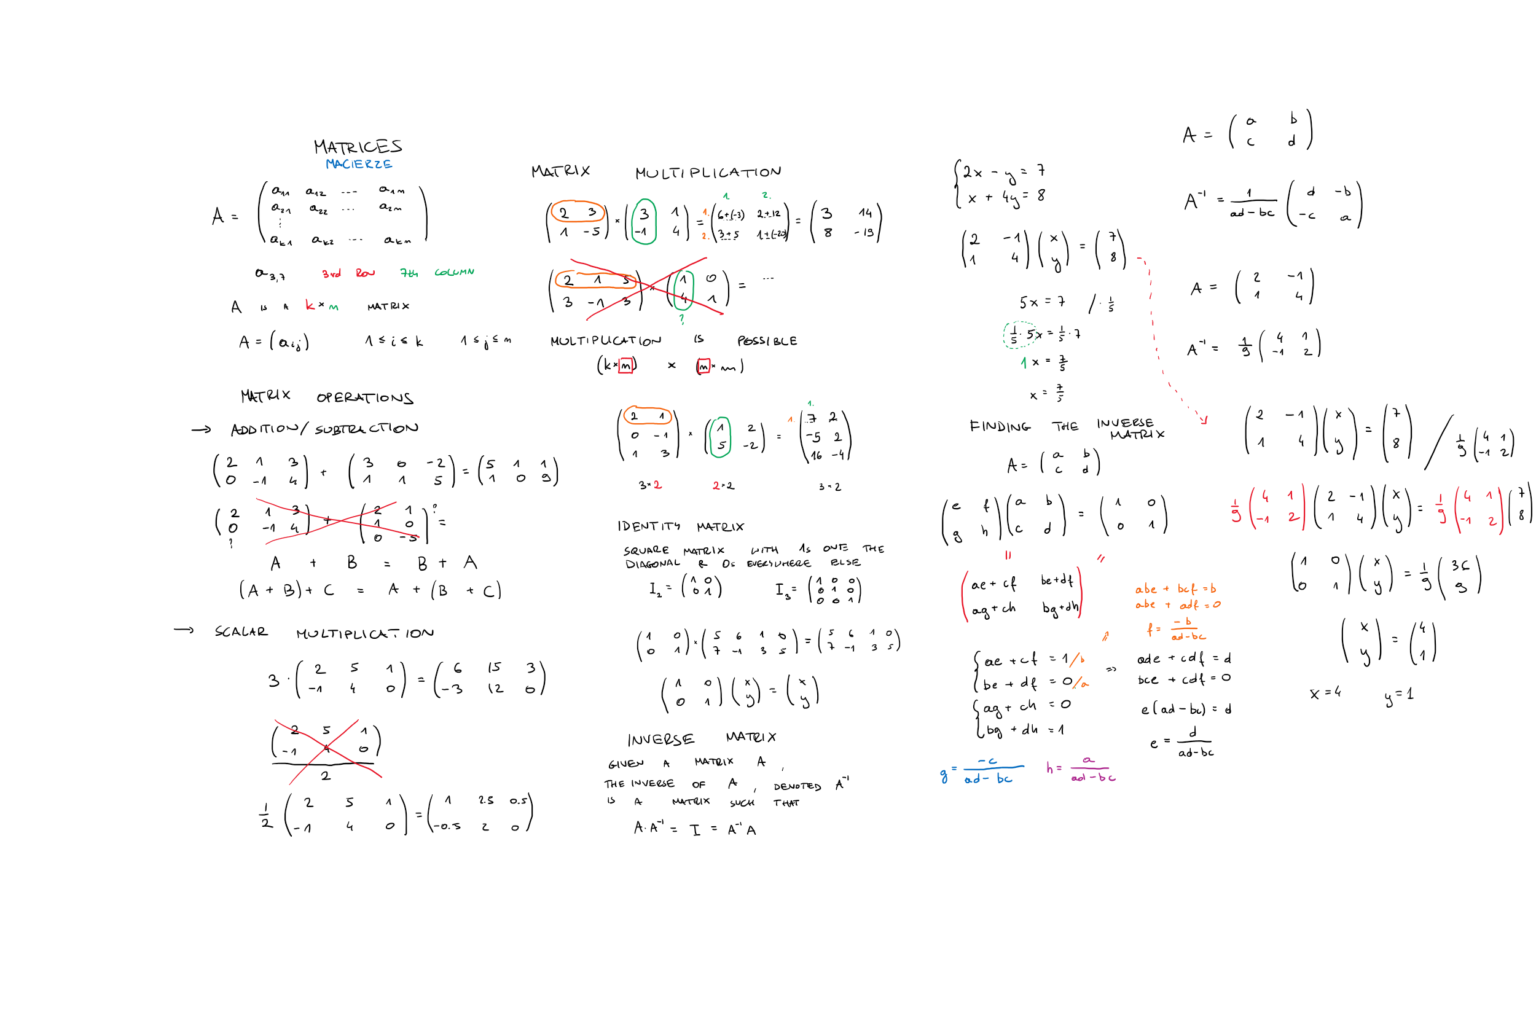 MATRICES
MACIERZE
A = ( a₁₁ a₁₂ ... a₁ₘ
a₂₁ a₂₂ ... a₂ₘ
⋮
aₖ₁ aₖ₂ ... aₖₘ )
a₃,₇ 3rd ROW 7th COLUMN
A IS A k × m MATRIX
A = (aᵢⱼ) 1 ≤ i ≤ k 1 ≤ j ≤ m
MATRIX OPERATIONS
→ ADDITION/SUBTRACTION
( 2 1 3 ) + ( 3 0 -2 ) = ( 5 1 1 )
( 0 -1 4 ) ( 1 1 5 ) ( 1 0 9 )
( 2 1 3 ) + ( 2 1 ) ? =
( 0 -1 4 ) ( 1 0 )
? ( 0 -5 )
A + B = B + A
(A + B) + C = A + (B + C)
→ SCALAR MULTIPLICATION
3 · ( 2 5 1 ) = ( 6 15 3 )
( -1 4 0 ) ( -3 12 0 )
( 2 5 1 )
( -1 4 0 )
2
1/2 ( 2 5 1 ) = ( 1 2.5 0.5 )
( -1 4 0 ) ( -0.5 2 0 )
MATRIX MULTIPLICATION
1. 2.
( 2 3 ) × ( 3 1 ) = 1. ( 6+(-3) 2+12 ) = ( 3 14 )
( 1 -5 ) ( -1 4 ) 2. ( 3+5 1+(-20) ) ( 8 -19 )
( 2 1 5 ) × ( 1 0 ) = ...
( 3 -1 3 ) ( 4 1 )
?
MULTIPLICATION IS POSSIBLE
(k × m) × (m × n)
1.
( 2 1 ) · ( 1 2 ) = 1. ( 7 2 )
( 0 -1 ) ( 5 -2 ) ( -5 2 )
( 1 3 ) ( 16 -4 )
3×2 2×2 3×2
IDENTITY MATRIX
SQUARE MATRIX WITH 1s ONE THE
DIAGONAL & 0s EVERYWHERE ELSE
I₂ = ( 1 0 ) I₃ = ( 1 0 0 )
( 0 1 ) ( 0 1 0 )
( 0 0 1 )
( 1 0 ) · ( 5 6 1 0 ) = ( 5 6 1 0 )
( 0 1 ) ( 7 -1 3 5 ) ( 7 -1 3 5 )
( 1 0 ) ( x ) = ( x )
( 0 1 ) ( y ) ( y )
INVERSE MATRIX
GIVEN A MATRIX A,
THE INVERSE OF A, DENOTED A⁻¹
IS A MATRIX SUCH THAT
A·A⁻¹ = I = A⁻¹A
{ 2x - y = 7
x + 4y = 8
( 2 -1 ) ( x ) = ( 7 )
( 1 4 ) ( y ) ( 8 )
5x = 7 / · 1/5
1/5 · 5x = 1/5 · 7
1x = 7/5
x = 7/5
FINDING THE INVERSE
MATRIX
A = ( a b )
( c d )
( e f ) ( a b ) = ( 1 0 )
( g h ) ( c d ) ( 0 1 )
= =
( ae+cf be+df )
( ag+ch bg+dh )
{ ae + cf = 1 /b
be + df = 0 /a
{ ag + ch = 0
bg + dh = 1
g = -c/(ad-bc) h = a/(ad-bc)
abe + bcf = b
abe + adf = 0
f = -b/(ad-bc)
⇒ ade + cdf = d
bce + cdf = 0
e(ad-bc) = d
e = d/(ad-bc)
A = ( a b )
( c d )
A⁻¹ = 1/(ad-bc) ( d -b )
( -c a )
A = ( 2 -1 )
( 1 4 )
A⁻¹ = 1/9 ( 4 1 )
( -1 2 )
( 2 -1 ) ( x ) = ( 7 ) / 1/9 ( 4 1 )
( 1 4 ) ( y ) ( 8 ) ( -1 2 )
1/9 ( 4 1 ) ( 2 -1 ) ( x ) = 1/9 ( 4 1 ) ( 7 )
( -1 2 ) ( 1 4 ) ( y ) ( -1 2 ) ( 8 )
( 1 0 ) ( x ) = 1/9 ( 36 )
( 0 1 ) ( y ) ( 9 )
( x ) = ( 4 )
( y ) ( 1 )
x = 4 y = 1